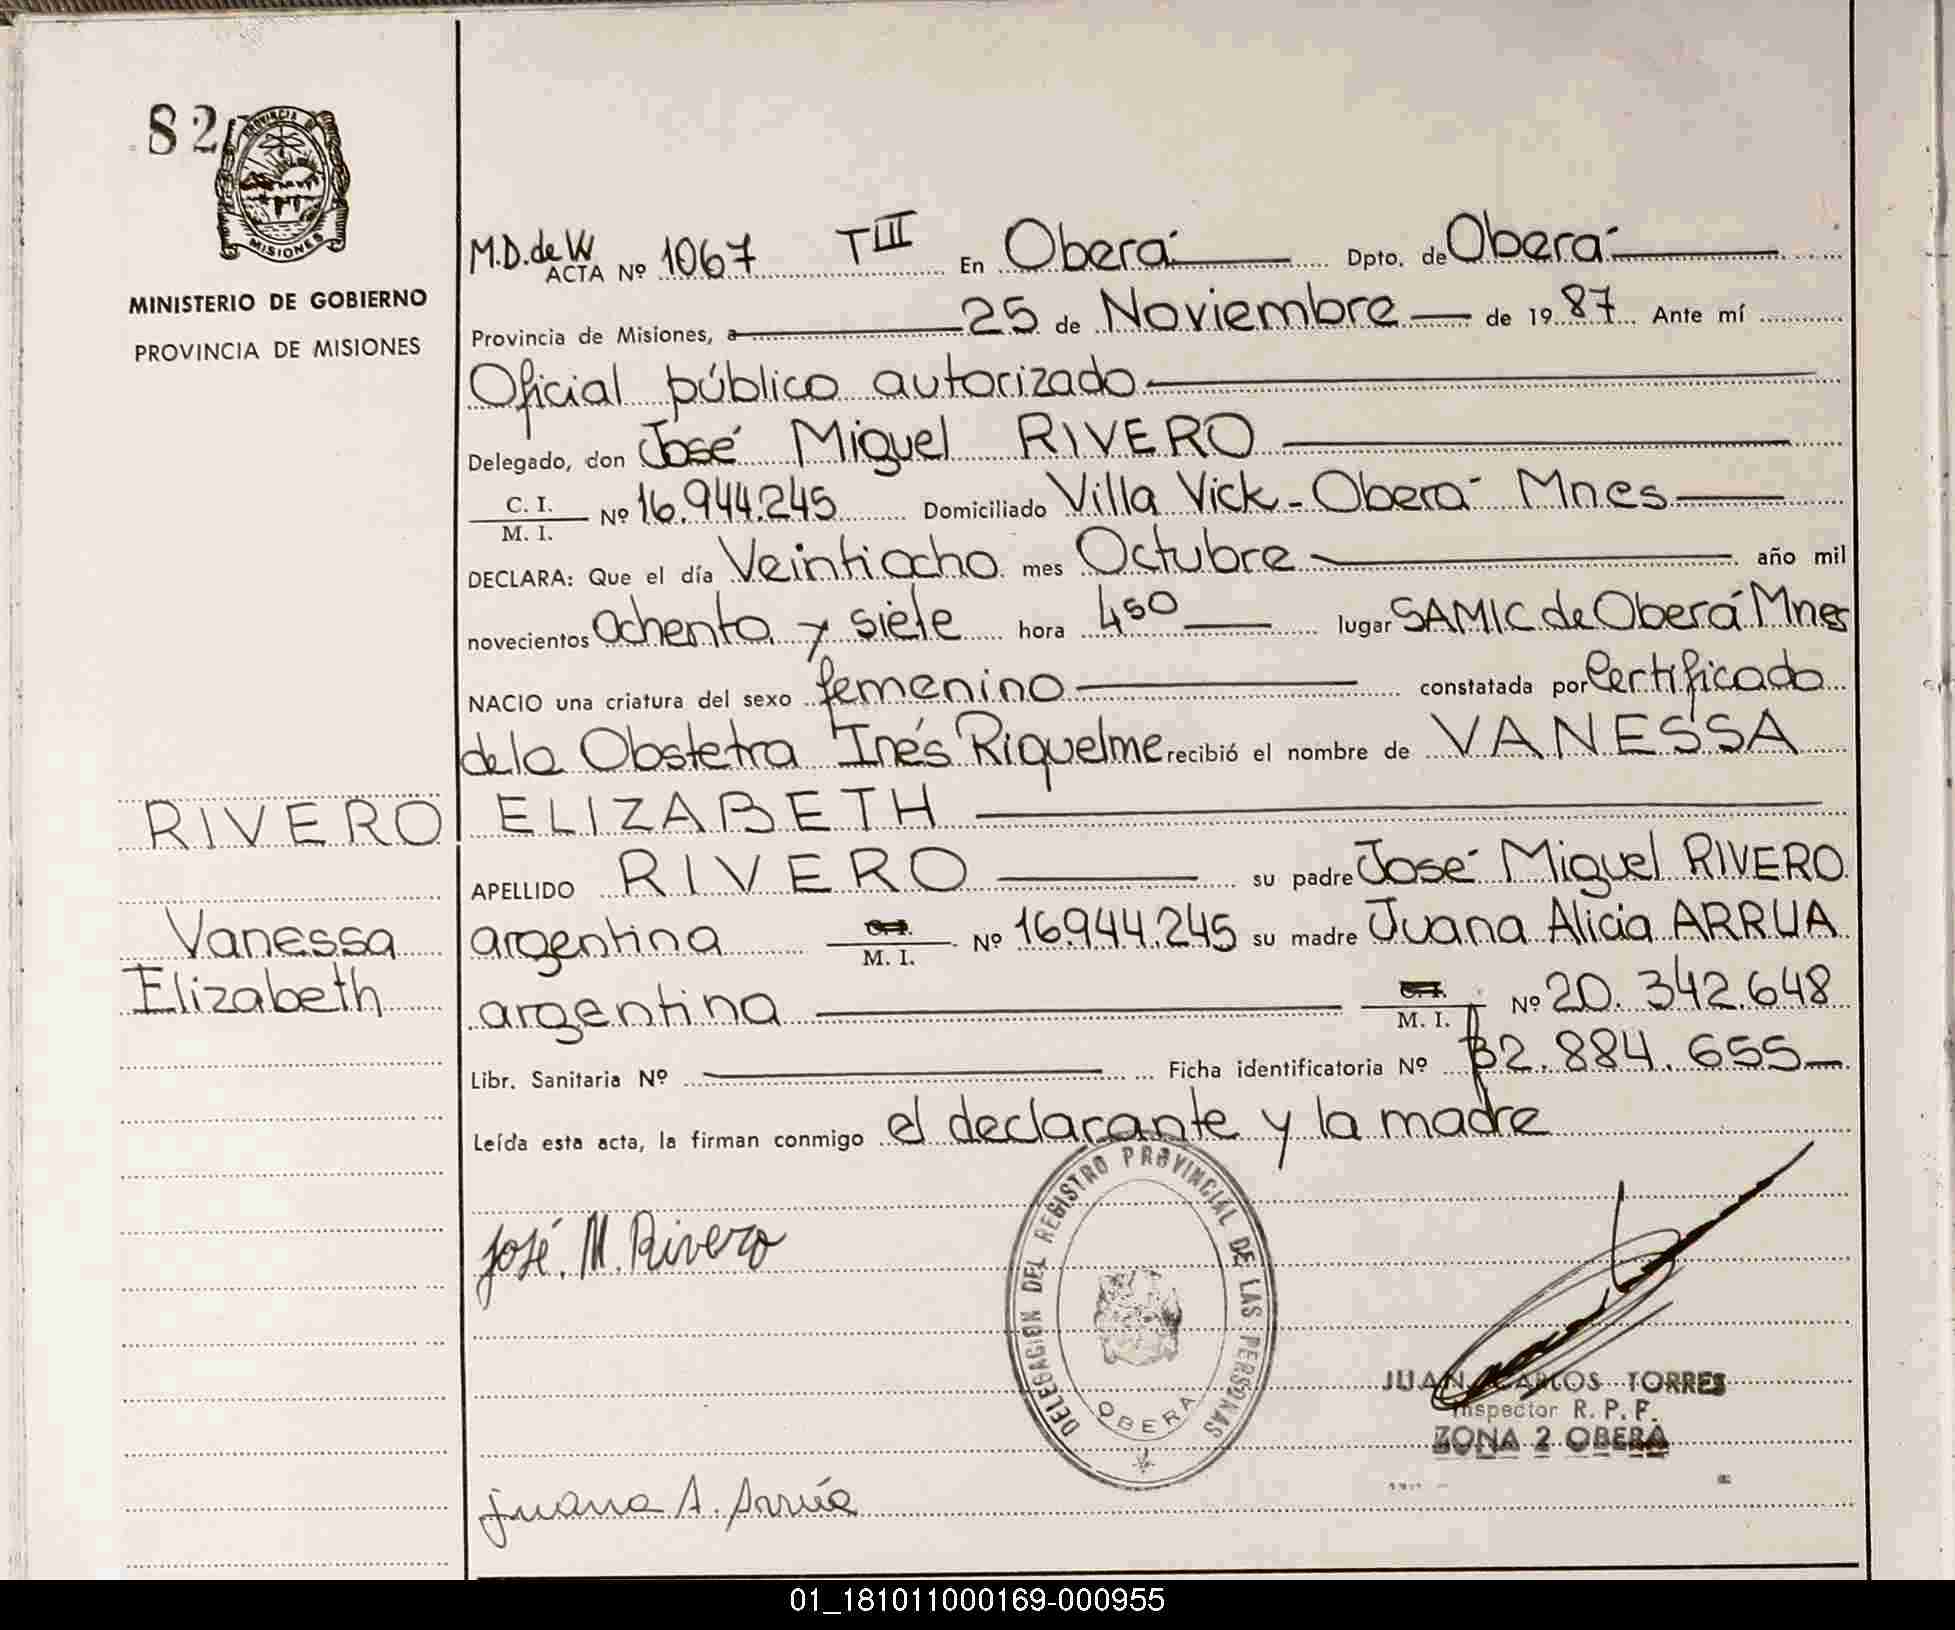 82
PROVINCIA DE
MISIONES
MINISTERIO DE GOBIERNO
PROVINCIA DE MISIONES
M.D. de W
ACTA Nº 1067 TIII En Oberá Dpto. de Oberá
Provincia de Misiones, a 25 de Noviembre de 1987 Ante mí
Oficial público autorizado
Delegado, don José Miguel RIVERO
C. I.
M. I. Nº 16.944.245 Domiciliado Villa Vick - Oberá Mnes
DECLARA: Que el día Veintiocho mes Octubre año mil
novecientos Ochenta y siete hora 4 50 lugar SAMIC de Oberá Mnes
NACIO una criatura del sexo femenino constatada por Certificado
de la Obstetra Inés Riquelme recibió el nombre de VANESSA
ELIZABETH
RIVERO
Vanessa
Elizabeth
APELLIDO RIVERO su padre José Miguel RIVERO
argentina M. I. Nº 16.944.245 su madre Juana Alicia ARRUA
argentina M. I. Nº 20.342.648
Libr. Sanitaria Nº Ficha identificatoria Nº 32.884.655
Leída esta acta, la firman conmigo el declarante y la madre
José. M. Rivero
DELEGACION DEL REGISTRO PROVINCIAL DE LAS PERSONAS
OBERA
JUAN CARLOS TORRES
Inspector R. P. P.
ZONA 2 OBERA
Juana A. Arrúa
01_181011000169-000955